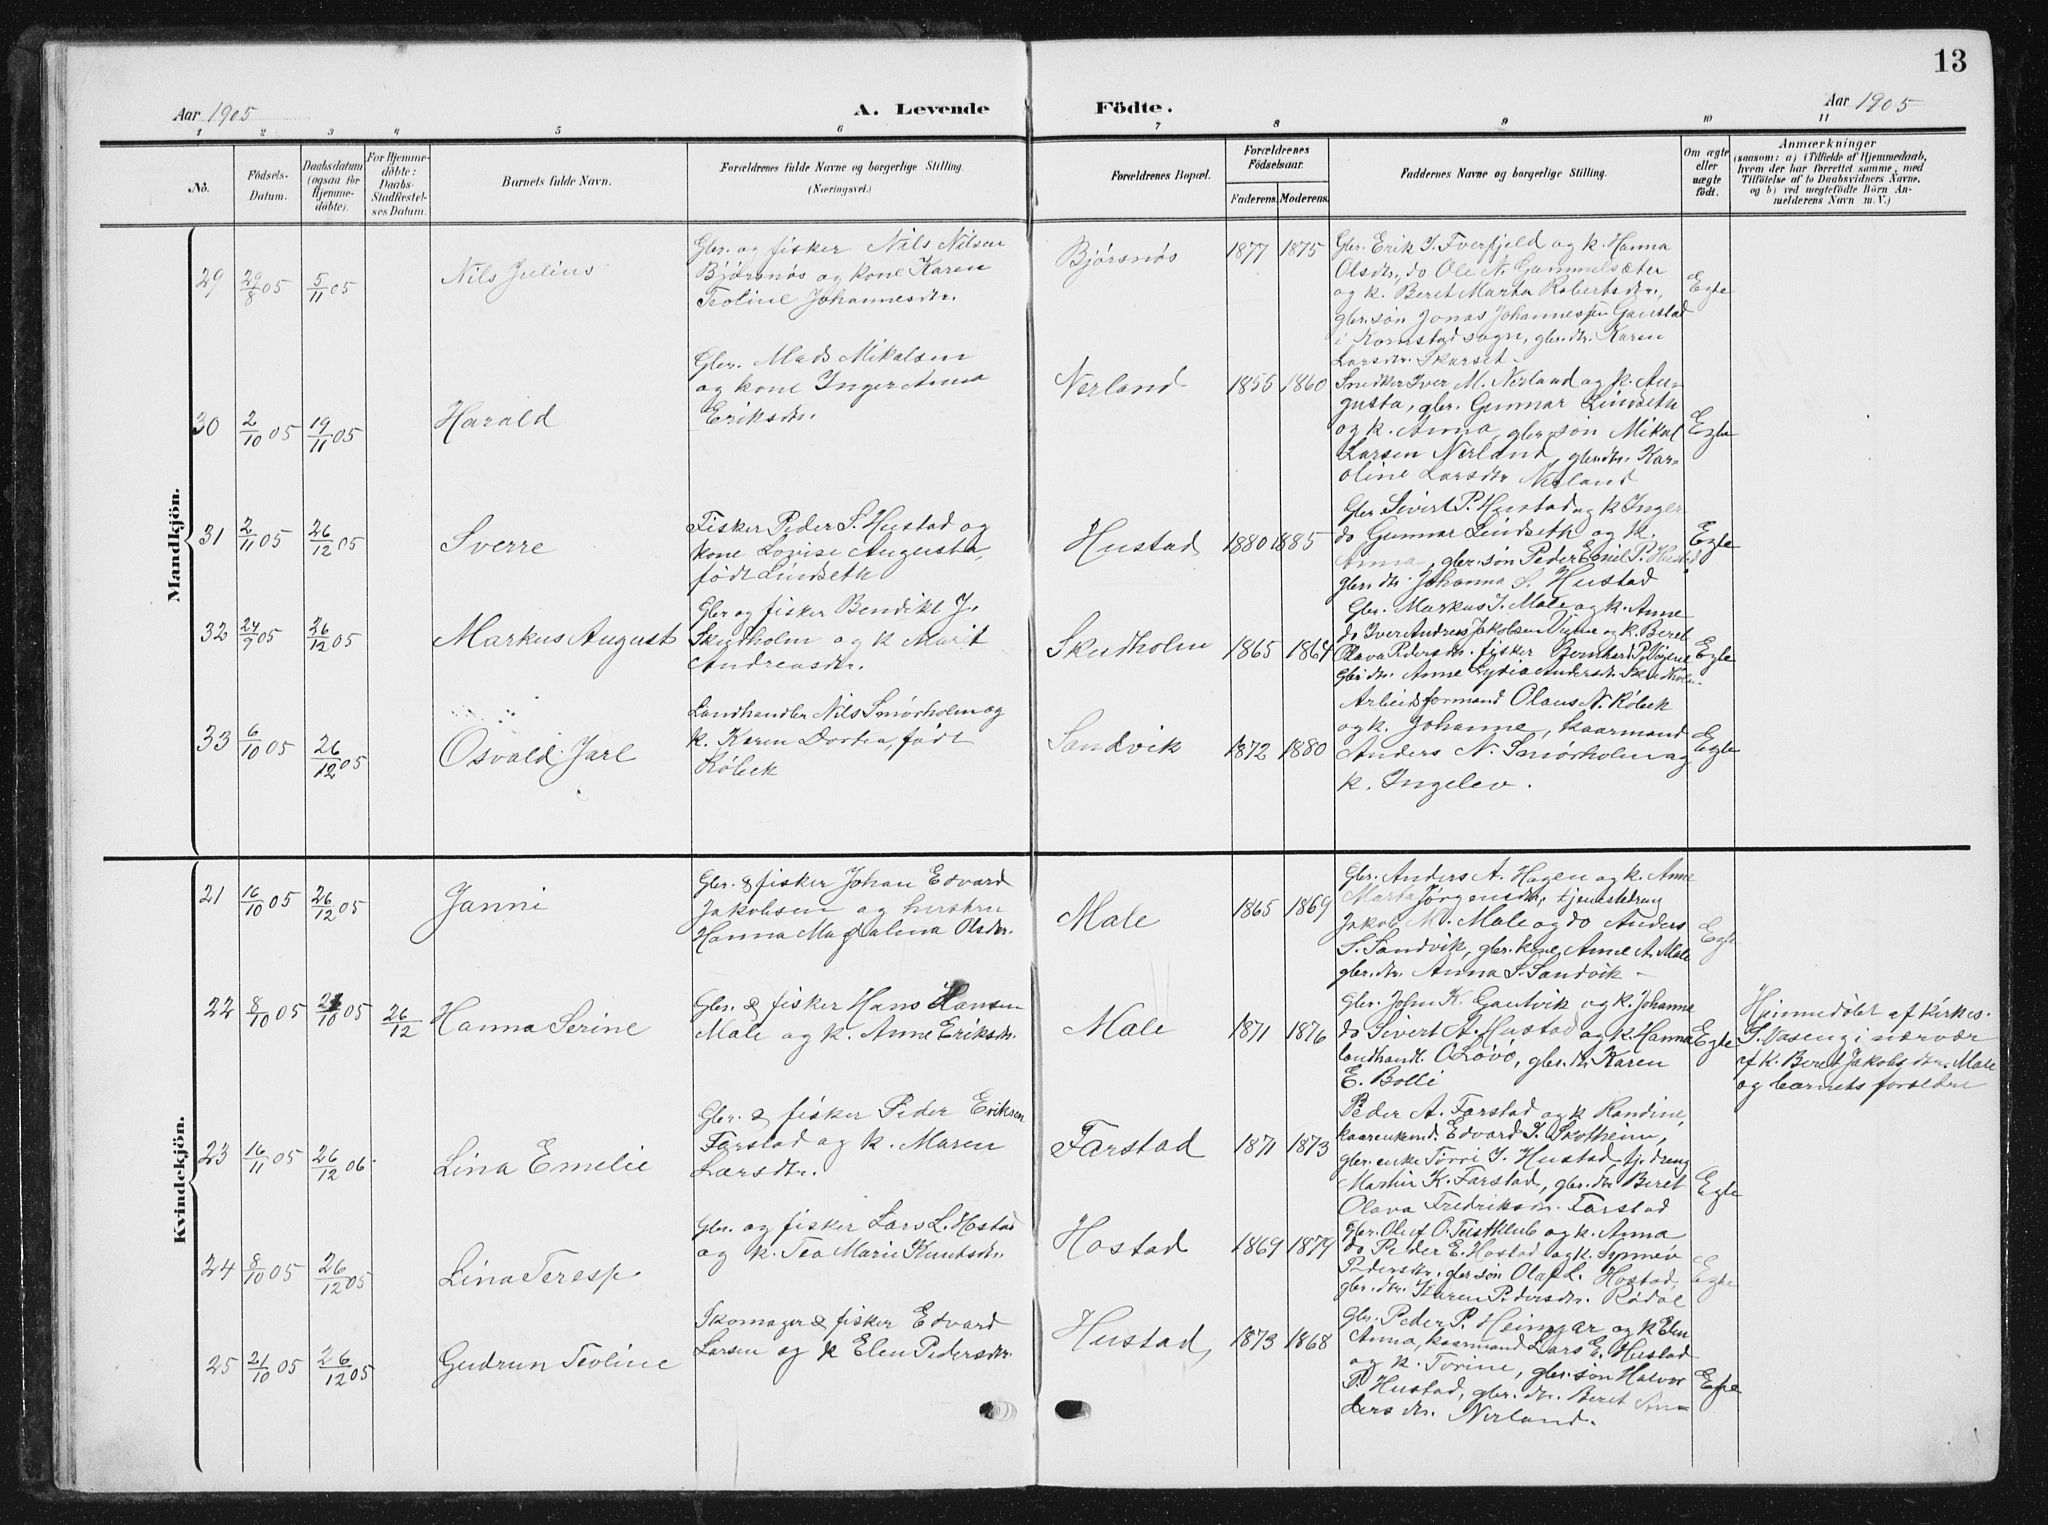 13
Aar 1905
A. Levende
Födte.
Aar 1905
1 2 3 4 5 6 7 8 9 10 11
No.
Födsels-
Datum.
Daabsdatum
(ogsaa for
Hjemme-
döbte).
For Hjemme-
döbte:
Daabs-
Stadfæstel-
ses Datum.
Barnets fulde Navn.
Forældrenes fulde Navne og borgerlige Stilling.
(Næringsvei.)
Forældrenes Bopæl.
Forældrenes
Födselsaar.
Faderens. Moderens.
Faddernes Navne og borgerlige Stilling.
Om ægte
eller
uægte
födt.
Anmærkninger
(saasom: a) i Tilfælde af Hjemmedaab,
hvem der har forrettet samme, med
Tilföielse af to Daabsvidners Navne,
og b) ved uægtefödte Börn An-
melderens Navn m. V.)
Mandkjön.
29 29/8 05 5/11 05
Nils Julius
Gbr. og fisker Nils Nilsen
Bjørsnøs og kone Karen
Teoline Johannesdtr.
Bjørsnøs
1877 1875
Gbr. Erik T. Tverfjeld og k. Hanna
Olsdtr., do Ole N. Gammelsæter
og k. Beret Marta Robertsdtr.,
gbr.søn Jonas Johannessen Gaustad
i Kornstad sogn, gbr.dtr. Karen
Larsdtr. Skarset
Egte
30 2/10 05 19/11 05
Harald
Gbr. Mads Mikalsen
og kone Inger Anna
Eriksdtr.
Nerland
1855 1860
Snedker Iver M. Nerland og k. Au-
gusta, gbr. Gunnar Lindseth
og k. Anna, gbr.søn Mikal
Larsen Nerland, gbr.dtr. Kar-
oline Larsdtr Nerland
Egte
31 2/11 05 26/12 05
Sverre
Fisker Peder S. Hustad og
kone Lovise Augusta,
født Lindseth
Hustad
1880 1885
Gbr Sivert P. Hustad og k Inger
do Gunnar Lindseth og k.
Anna, gbr.søn Peder Emil P. Hustad
gbr.dtr. Johanna S. Hustad
Egte
32 24/9 05 26/12 05
Markus August
Gbr og fisker Bendikt J.
Skudholm og k Marit
Andreasdtr.
Skudholm
1865 1864
Gbr. Markus J. Male og k. Anne
do Iver Andreas Jakobsen Vigne og k. Beret
Olava Pedersdtr. fisker Bernhard P.
Gbr.dtr. Anne Lydia Andersdtr. Skudholm
Egte
33 6/10 05 26/12 05
Osvald Jarl
Landhandler Nils Smørholm og
k. Karen Dortea, født
Røbek
Sandvik
1872 1880
Arbeidsformand Olaus N. Røbek
og k. Johanne, kaarmand
Anders N. Smørholm og
k. Ingelev.
Egte
Kvindekjön.
21 16/10 05 26/12 05
Janni
Gbr. & fisker Johan Edvard
Jakobsen og hustru
Hanna Magdalena Olsdtr.
Male
1865 1869
Gbr. Anders A. Hagen og k. Anne
Marta Jørgensdtr, tjenestedreng
Jakob M. Male og do Anders
S. Sandvik, gbr. kone Anne A. Male
gbr.dtr. Anna S. Sandvik
Egte
22 8/10 05 21/10 05 26/12
Hanna Serine
Gbr. & fisker Hans Hansen
Male og k. Anne Eriksdtr.
Male
1871 1876
Gbr. John K. Gautvik og k. Johanne
do Sivert A. Hustad og k. Hanna
landhandl. O Løvø, gbr.dtr Karen
E. Bolli
Egte
Hjemmedøbt af kirkes.
T. Vaseng i nærvær
af k. Beret Jakobsdtr. Male
og barnets forældre
23 16/11 05 26/12 06.
Lina Emelie
Gbr. & fisker Peder Eriksen
Farstad og k. Maren
Larsdtr.
Farstad
1871 1873
Peder A. Farstad og k Randine,
kaarenkmd. Edvard I. Skotheim,
gbr.enke Torri J. Hustad, tj.dreng
Martin K. Farstad, gbr.dtr Beret
Olava Fredriksdtr. Farstad
Egte
24 8/10 05 26/12 05
Lina Teresp
Gbr. og fisker Lars L. Hostad
og k. Tea Marie Knutsdtr.
Hostad
1869 1879
Gbr. Oluf O. Teistklub og k. Anna
do Peder E. Hostad og k. Synnøv
Pedersdtr, gbr.søn Olaf L. Hostad,
gbr.dtr. Karen Pedersdtr. Rødal
Egte
25 21/10 05 26/12 05
Gudrun Teoline
Skomager & fisker Edvard
Larsen og k Elen Pedersdtr.
Hustad,
1873 1868
Gbr. Peder P. Heinngar og k Elen
Anna, kaarmand Lars E. Hustad
og k. Torine, gbr.søn Halvor
P. Hustad, gbr.dtr. Beret An-
dersdtr. Nerland.
Egte